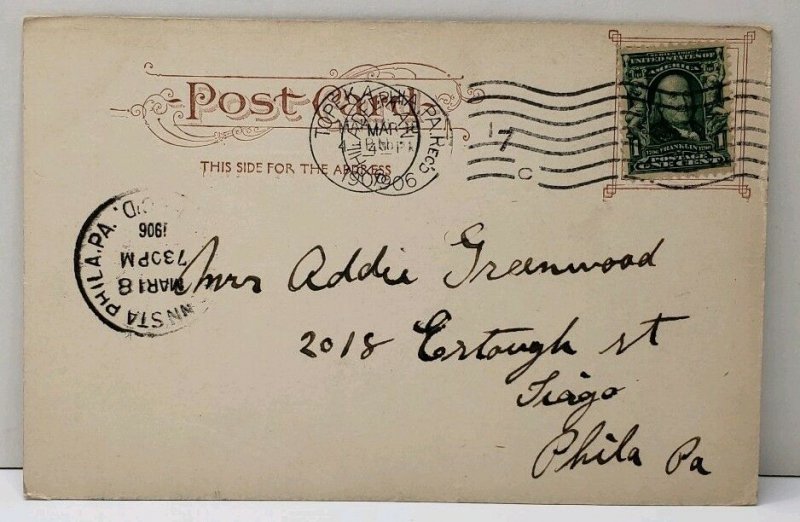 Post Card
THIS SIDE FOR THE ADDRESS
PHILA, PA. REC'D
MAR
1906
17
C
UNITED STATES OF
AMERICA
FRANKLIN
POSTAGE
ONE CENT
NN STA PHILA, PA.
MAR 18
730 PM
1906
Mrs Addie Greenwood
2018 st
Tiago
Phila Pa